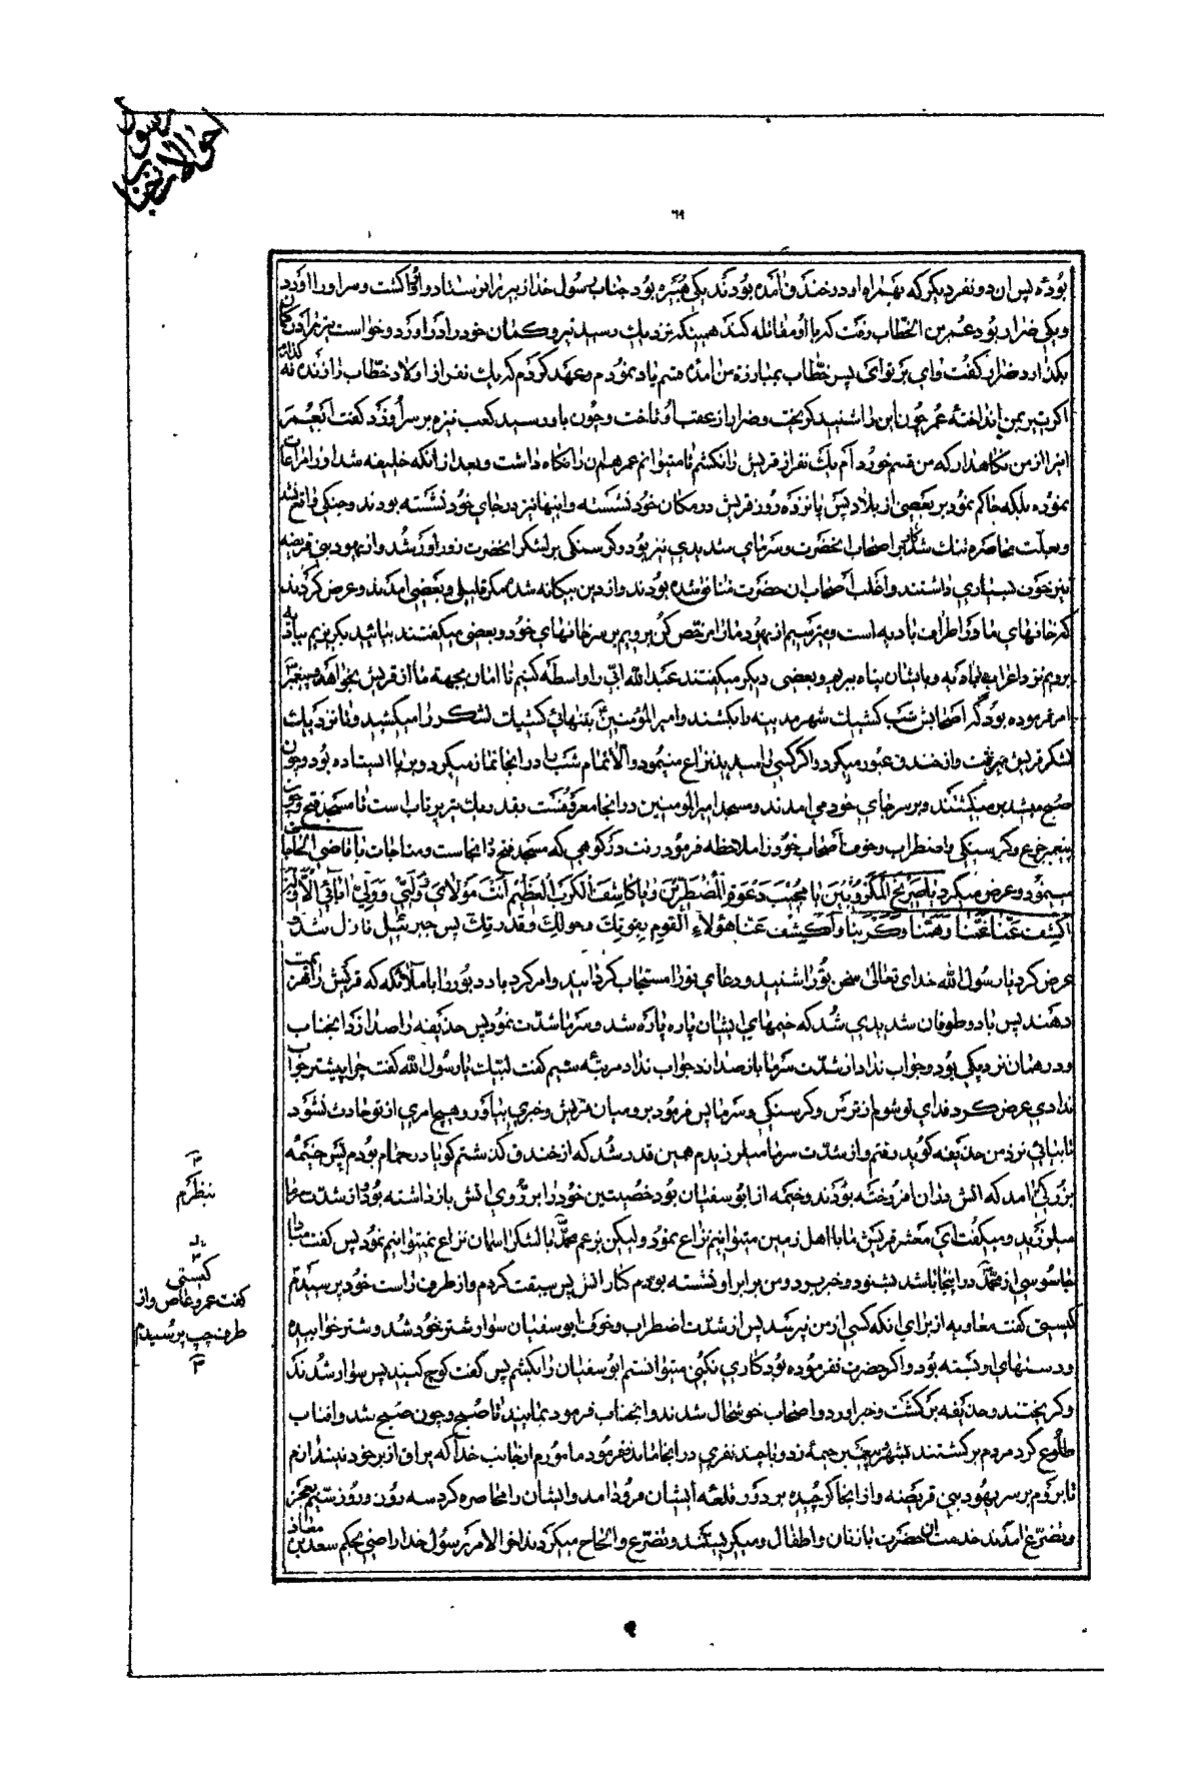 احوالات جناب رسول
۶۹
بوده پس ان دو نفر دیکر که بهمراه او در خندق امده بودند یکی هبیره بود جناب رسول خدا زبیر را فرستاد و او را کشت و سر او را اورد
و یکی ضرار بود عمر بن الخطاب رفت که با او مقاتله کند همینکه نزدیك رسید تیر و کمان خود را در اورد و خواست تیر را در کمان
بکذارد ضرار کفت وای بر تو ای پسر خطاب بمبارزه من امده قسم یاد نمودم و عهد کردم که یك نفر از اولاد خطاب را زنده نکذارم
اکر تیر بمن انداختهٔ عمر چون این را شنید کریخت و ضرار از عقب او تاخت و چون باو رسید کعب نیزه بر سر او زد کفت ای عمر
اینرا از من نکاهدار که من قسم خورده‌ام یك نفر از قریش را نکشم تا میتوانم عمر هم ان را نکاه داشت و بعد از انکه خلیفه شد او را مراعات
نموده بلکه حاکم نمود بر بعضی از بلاد پس پانزده روز قریش در مکان خود نشسته و اینها نیز در جای خود نشسته بودند و جنکی واقع نشد
و بعلت محاصره تنك شد کار بر اصحاب انحضرت و سرمای شدیدی نیز بود و کرسنکی بر لشکر انحضرت زور اور شد و از یهود بنی قریضه
نیز خوف بسیاری داشتند و اغلب اصحاب ان حضرت منافق شده بودند و از دین بیکانه شده مکر قلیلی و بعضی امدند و عرض کردند
که خانهای ما در اطراف بادیه است و میترسیم از یهود ما را مرخص کن برویم بر سر خانهای خود و بعضی میکفتند بیائید بکریزیم ببادیه
برویم نزد اعراب بادیه و بایشان پناه بریم و بعضی دیکر میکفتند عبد الله ابی را واسطه کنیم تا امان بجهة ما از قریش بخواهد و پیغمبر
امر فرموده بود که اصحابش شب کشیك شهر مدینه را بکشند و امیر المؤمنین بتنهائی کشیك لشکر را میکشید و تا نزدیك
لشکر قریش میرفت و از خندق عبور میکرد و اکر کسی را میدید نزاع مینمود و الا تمام شب را در انجا نماز میکرد و بر پا ایستاده بود و چون
صبح میشد بر میکشتند و بر سر جای خود می امدند و مسجد امیر المومنین در انجا معروفست بقدر یك تیر پرتاب است تا مسجد فتح و چون
پیغمبر جوع و کرسنکی و اضطراب و خوف اصحاب خود را ملاحظه فرمود رفت در کوهی که مسجد فتح در انجاست و مناجات با قاضی الحاجات
مینمود و عرض میکرد یا صریخ المکروبین یا مجیب دعوة المضطرین و یا کاشف الکرب العظیم انت مولای و ولیی و ولی ابائی الاولین
اکشف عنا غمنا و همنا و کربنا و اکشف عنا هؤلاء القوم بقوتك و حولك و قدرتك پس جبرئیل نازل شد
عرض کرد یا رسول الله خدای تعالی سخن تو را شنید و دعای تو را مستجاب کردانید و امر کرد باد دبور را با ملائکه که قریش را هزیمت
دهند پس باد و طوفان شدیدی شد که خیمهای ایشان پاره پاره شد و سرما شدت نمود پس حذیفه را صدا زد انجناب
و در همان نزدیکی بود و جواب نداد از شدت سرما باز صدا زد جواب نداد مرتبه سیم کفت لبیك یا رسول الله کفت چرا پیشتر جواب
ندادی عرض کرد فدای تو شوم از ترس و کرسنکی و سرما پس فرمود برو میان قریش و خبری بیاور و هیچ امری از تو حادث نشود
تا بیائی نزد من حذیفه کوید رفتم و از شدت سرما میلرزیدم همین قدر شد که از خندق کذشتم کویا در حمام بودم پس خیمه
بزرکی ۲ امد که اتش در ان افروخته بودند و خیمه از ابو سفیان بود خصیتین خود را بر روی اتش باز داشته بود و از شدت سرما
میلرزید و میکفت ای معشر قریش ما با اهل زمین میتوانیم نزاع نمود ولیکن بزعم محمد با لشکر اسمان نزاع نمیتوانیم نمود پس کفت مبادا
جاسوسی از محمد در اینجا باشد بشنود و خبر برد و من برابر او نشسته بودم کنار اتش پس سبقت کردم و از طرف راست خود پرسیدم
کیستی کفت معاویه از برای انکه کسی از من نپرسد پس از شدت اضطراب و خوف ابو سفیان سوار شتر خود شد و شتر خوابیده
و دستهای او بسته بود و اکر حضرت نفرموده بود کاری نکنی میتوانستم ابو سفیان را بکشم پس کفت کوچ کنید پس سوار شدند
و کریختند و حذیفه برکشت و خبر اورد و اصحاب خوشحال شدند و انجناب فرمود بمانید تا صبح و چون صبح شد و افتاب
طلوع کرد مردم برکشتند بشهر پیغمبر خیمه زد و با چند نفری در انجا ماند فرمود مامورم از جانب خدا که یراق از بر خود نیندازم
تا بروم بر سر یهود بنی قریضه و از انجا کوچیده بر در قلعه ایشان فرود امد و ایشان را محاصره کرد سه روز و روز سیم بعجز
و تضرع امدند خدمت ان حضرت با زنان و اطفال و میکریستند و تضرع و الحاح میکردند اخر الامر رسول خدا راضی بحکم سعد بن معاذ
۲
بنظرم
۳
کیستی
کفت عمرو عاص و از
طرف چپ پرسیدم
۳
۹